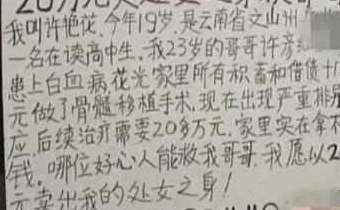 我叫许艳花、今年19岁、是云南省文山州
一名在读高中生、我23岁的哥哥许彦
患上白血病花光家里所有积蓄和借债十
元做了骨髓移植手术，现在出现严重排
应后续治疗需要20多万元，家里实在拿不
钱。哪位好心人能救我哥哥 我愿以2
元卖出我的处女之身！